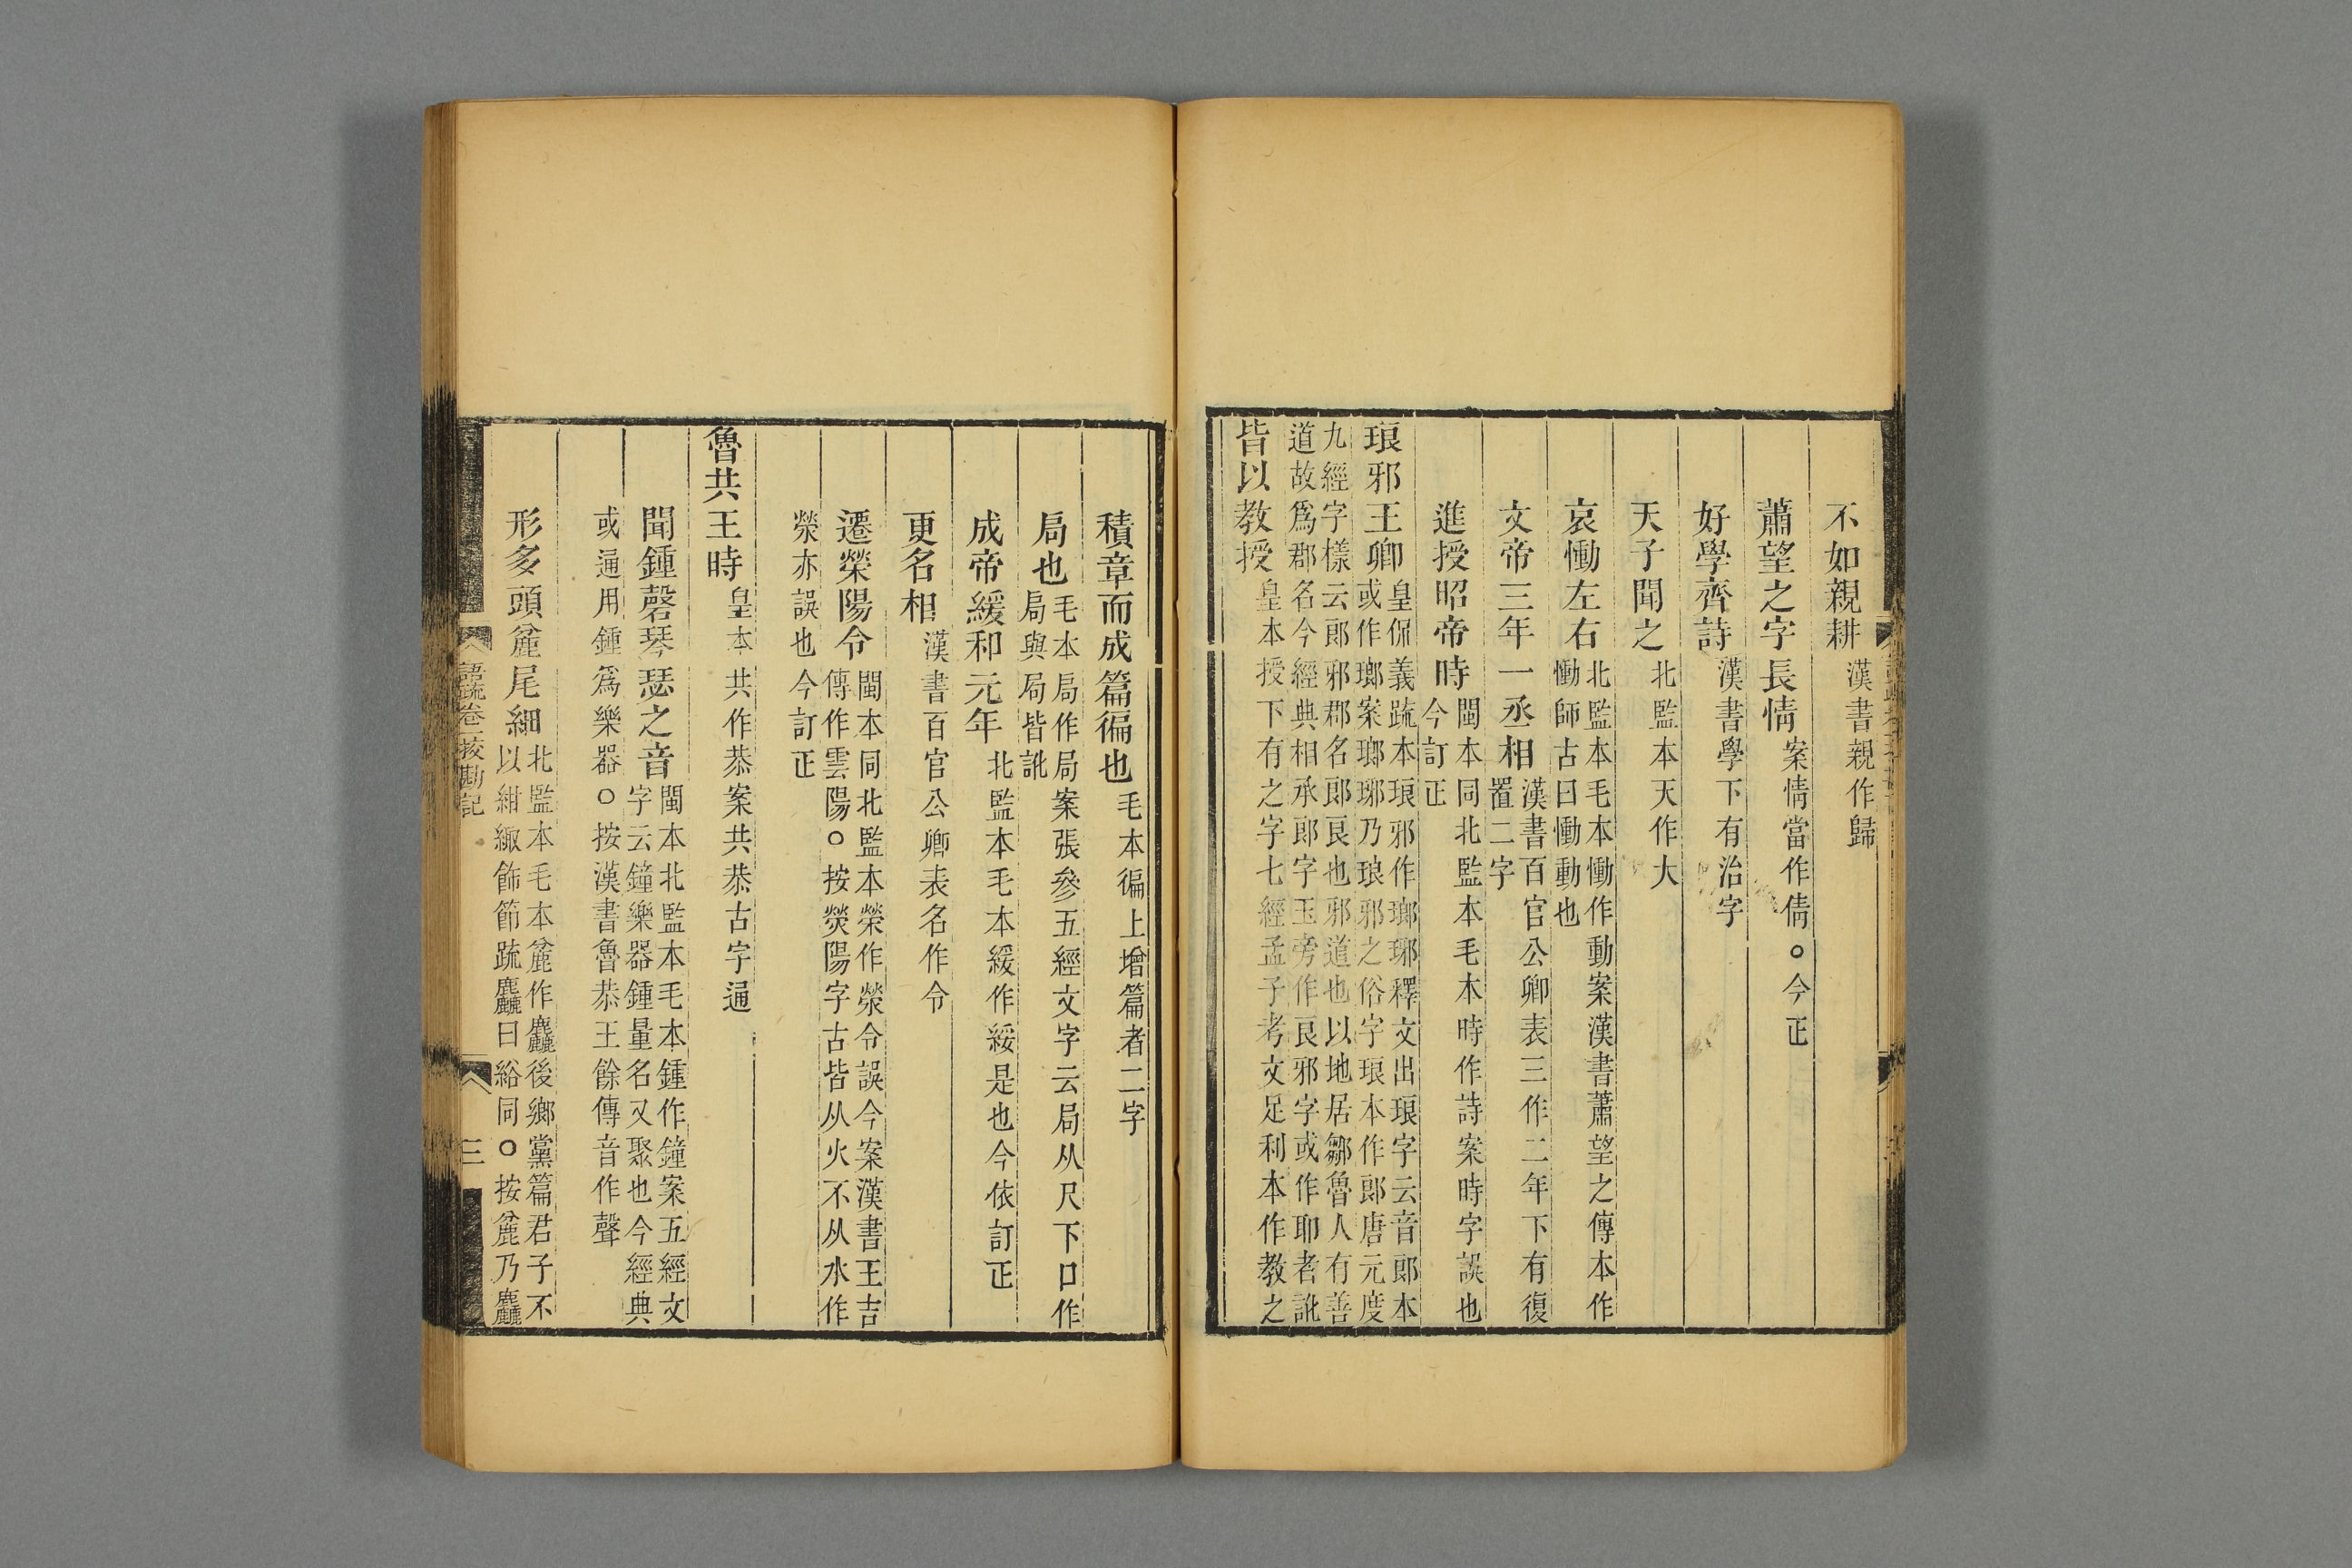 不如親耕漢書親作歸
蕭望之字長情案情當作倩○今正
好學齊詩漢書學下有治字
天子聞之北監本天作大
哀慟左右北監本毛本慟作動案漢書蕭望之傳本作慟師古曰慟動也
文帝三年一丞相漢書百官公卿表三作二年下有復置二字
進授昭帝時閩本同北監本毛本時作詩案時字誤也今訂正
琅邪王卿皇侃義疏本琅邪作瑯琊釋文出琅字云音郎本或作瑯案瑯琊乃琅邪之俗字琅本作郎唐元度
九經字樣云郎邪郡名郎艮也邪道也以地居鄒魯人有善道故爲郡名今經典相承郎字玉旁作艮邪字或作耶者訛
皆以教授皇本授下有之字七經孟子考文足利本作教之
積章而成篇徧也毛本徧上增篇者二字
局也毛本局作局案張參五經文字云局从尺下口作局與局皆訛
成帝緩和元年北監本毛本緩作綏是也今依訂正
更名相漢書百官公卿表名作令
遷榮陽令閩本同北監本榮作滎令誤今案漢書王吉傳作雲陽○按熒陽字古皆从火不从水作
榮亦誤也今訂正
魯共王時皇本共作恭案共恭古字通
聞鍾磬琴瑟之音閩本北監本毛本鍾作鐘案五經文字云鐘樂器鍾量名又聚也今經典
或通用鍾爲樂器○按漢書魯恭王餘傳音作聲
形多頭麄尾細北監本毛本麄作麤後鄉黨篇君子不以紺緅飾節疏麤曰綌同○按麄乃麤
語疏卷一挍勘記
三